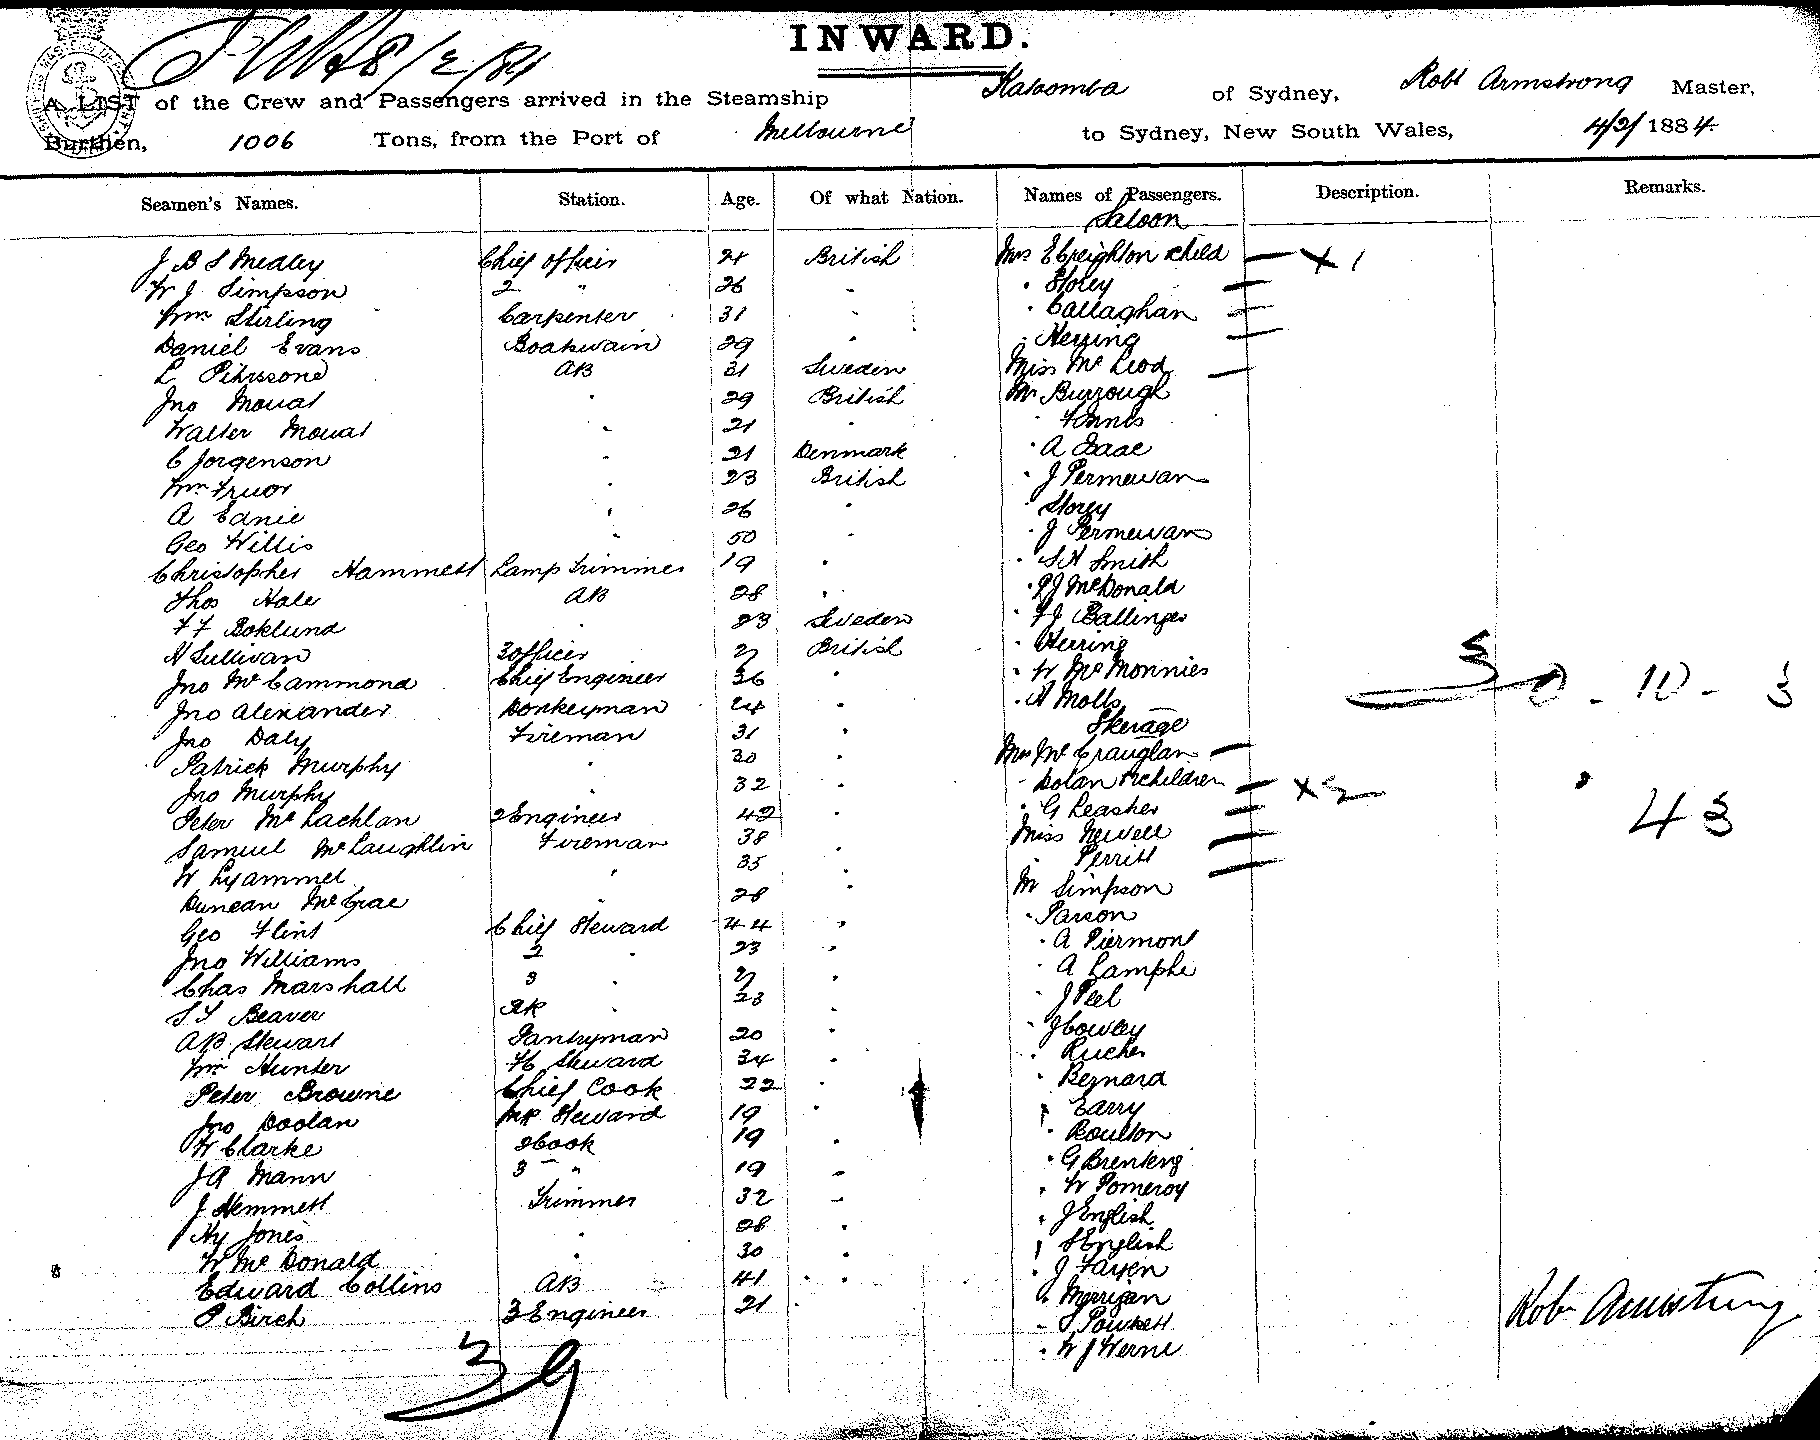 8/2/84
INWARD.
A LIST of the Crew and Passengers arrived in the Steamship Katoomba of Sydney, Robt Armstrong Master,
Burthen, 1006 Tons, from the Port of Melbourne to Sydney, New South Wales, 4/2/1884.
Seamen's Names. Station. Age. Of what Nation. Names of Passengers. Description. Remarks.
Saloon
J B S Medley Chief officer 21 British Mrs E Creighton & child — X 1
W J Simpson 2 " 26 " " Storey —
Wm Stirling Carpenter 31 " " Callaghan —
Daniel Evans Boatswain 29 " " Herring —
L 31 Sweden Miss McLeod —
AB
Jno Mouat " 29 British Mr Burrough
Walter Mouat " 21 " "
C Jorgenson " 21 Denmark " A Isaac
Wm " 23 British " J Permewan
A Ednie " 26 " " Storey
Geo Willis " 50 " " J Permewan
Christopher Hammett Lamp Trimmer 19 " " S H Smith
Thos Hale AB 28 " " P J McDonald
F F Boklund " 23 Sweden " F J Ballinger
H Sullivan 3 officer 27 British " Herring
Jno McCammond Chief Engineer 36 " " W McMonnies 30 - 10 - 3
Jno Alexander Donkeyman 24 " " A Molls
Steerage
Jno Daly Fireman 31 " Mrs —
Patrick Murphy " 30 " " Dolan & 2 children — X 2
Jno Murphy 32 " " G Leasher —
Peter McLachlan 2 Engineer 42 " Miss Newell — 43
Samuel McLaughlin Fireman 38 " " Perritt —
W " 35 " Mr Simpson
Duncan McCrae " 28 " " Parson
Geo Flint Chief Steward 44 " " A Piermont
Jno Williams 2 " 23 " " A Lamphe
Chas Marshall 3 " 27 " " J Peel
S S Beaver 23 " " J Cowley
A B Stewart Pantryman 20 " " Rucher
Wm Hunter Steward 34 " " Bernard
Peter Browne Chief Cook 22 " " Earry
Jno Doolan Steward 19 " " Boulton
W Clarke 2 Cook 19 " " G Brenteng
J A Mann 3 " 19 " " W Pomeroy
J Hemmett Trimmer 32 " " J English
Hy Jones " 28 " " S English
W McDonald " 30 " " J
Edward Collins AB 41 " " Merrigan
P Birch 3 Engineer 21 " " S
" W J Werne
Rob Armstrong
39